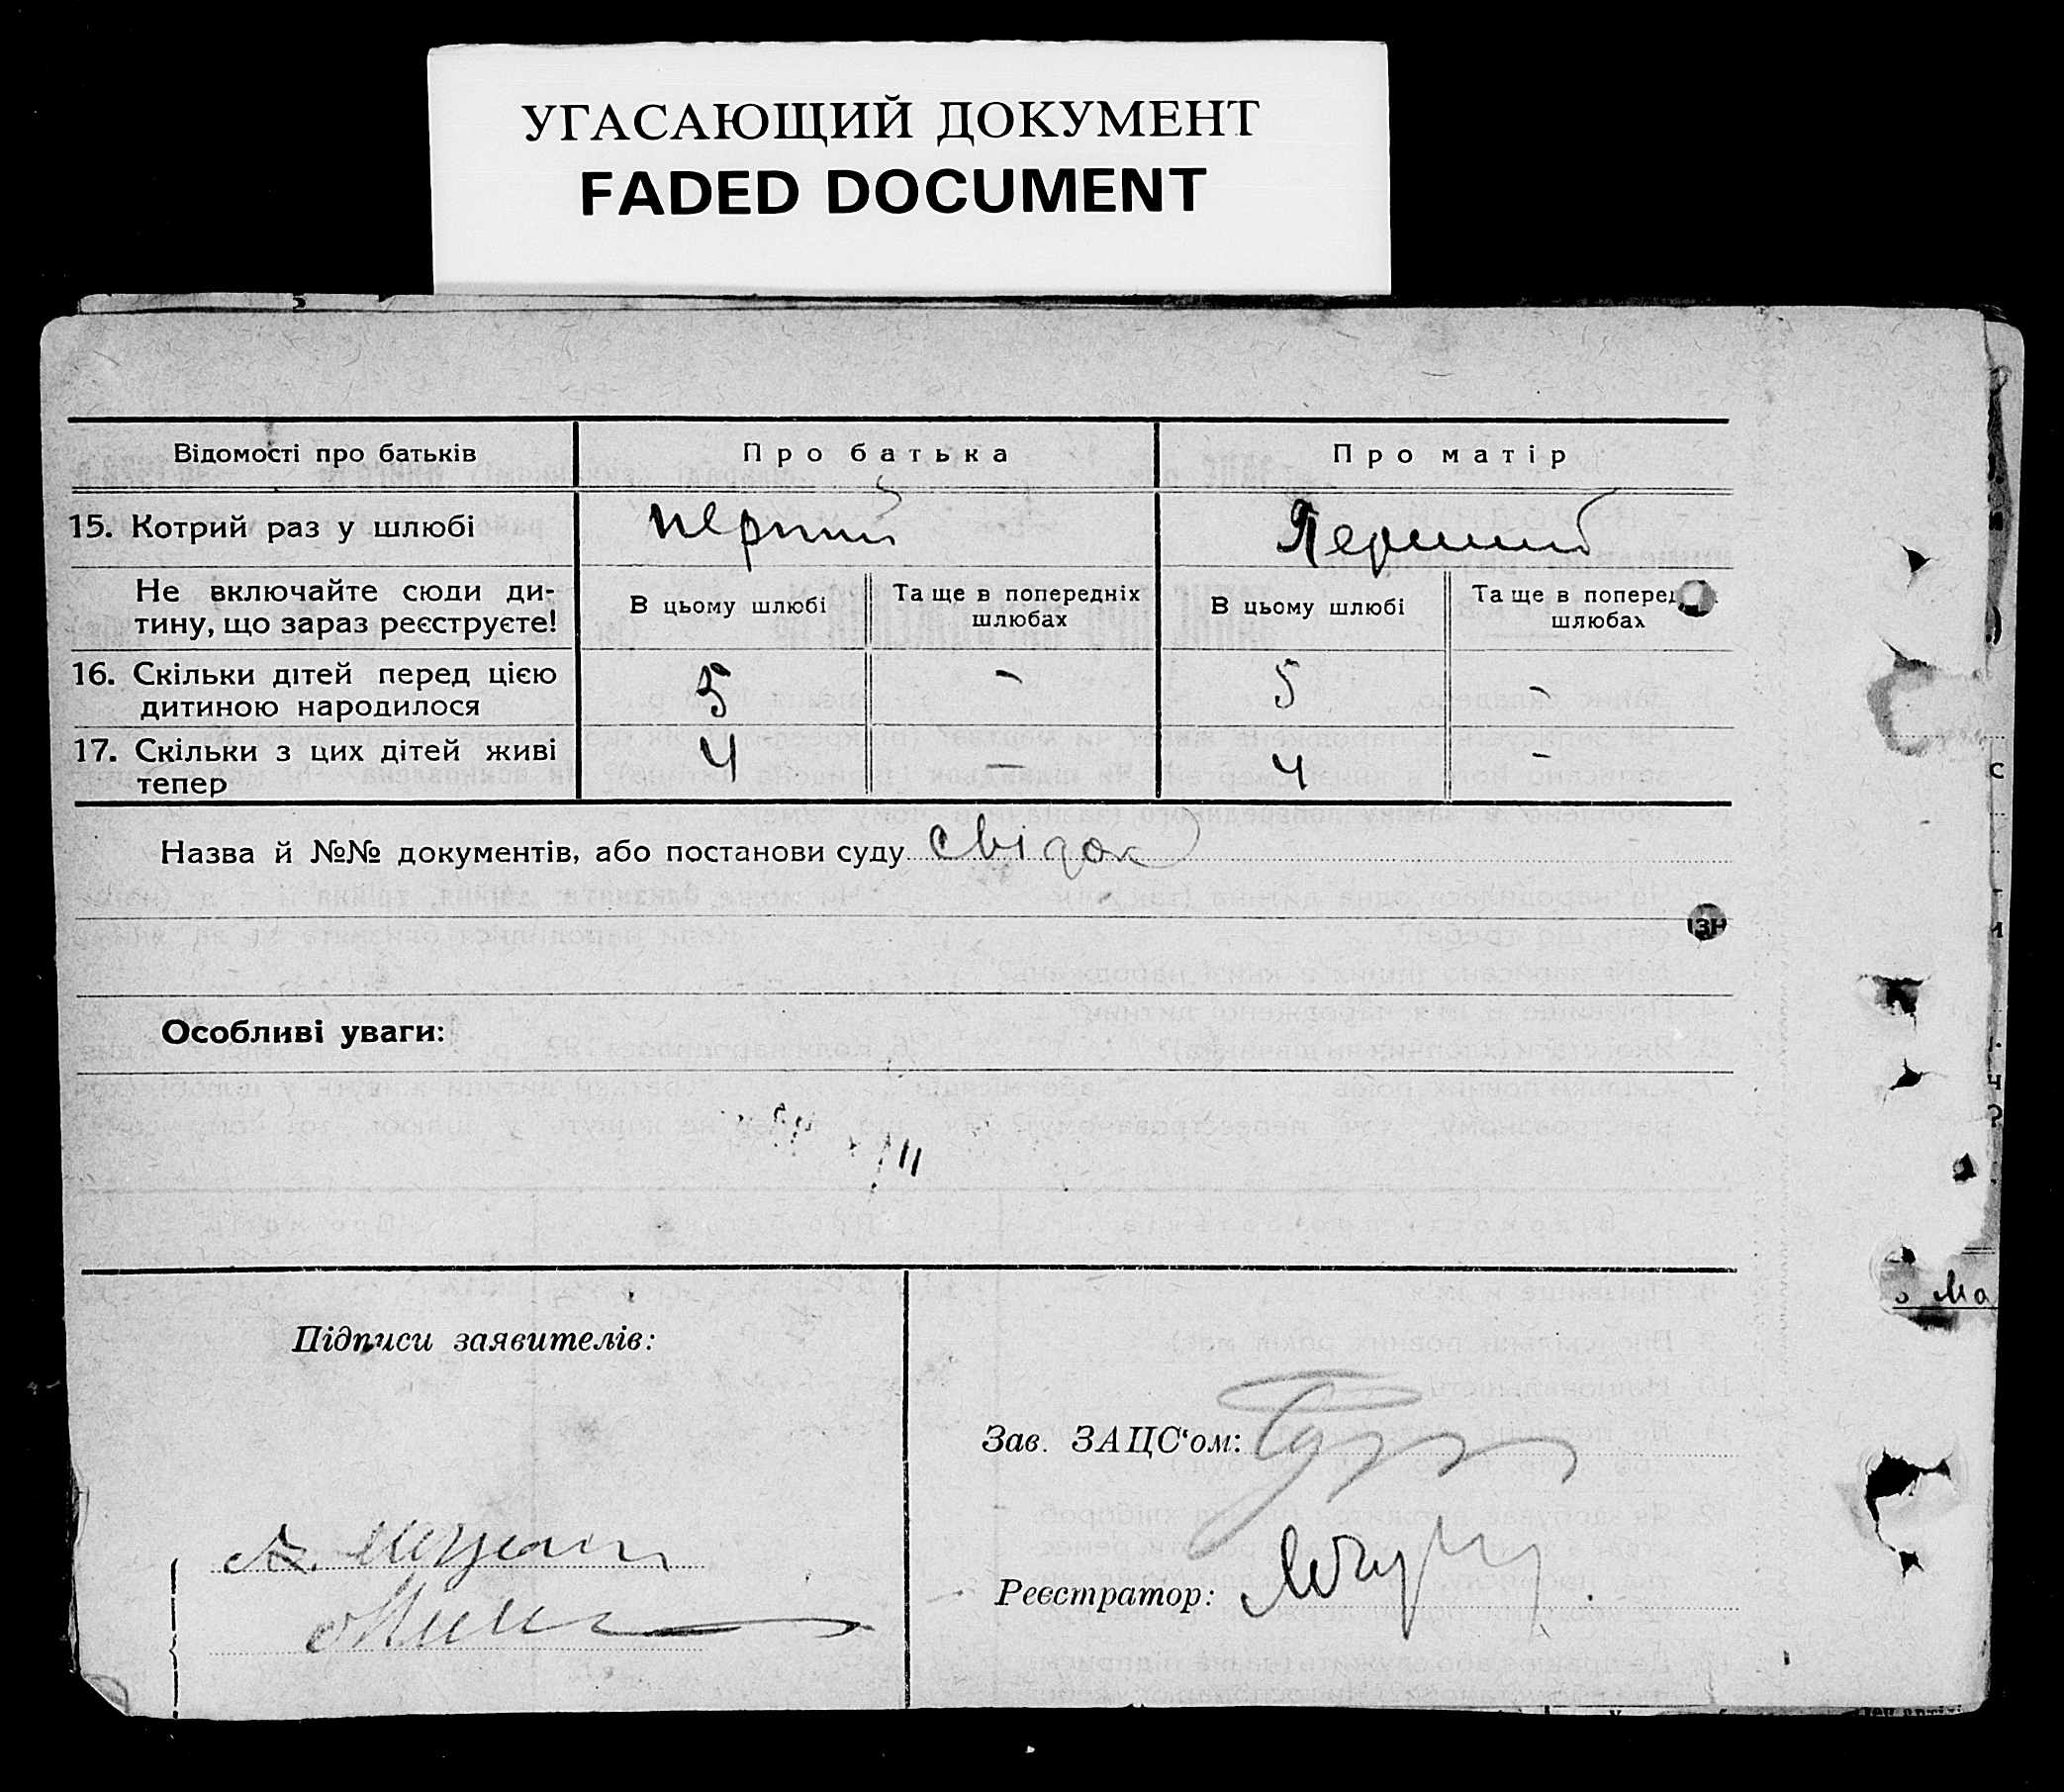 УГАСАЮЩИЙ ДОКУМЕНТ
FADED DOCUMENT
Відомості про батьків
Про батька
Про матір
15. Котрий раз у шлюбі
перший
Перший
Не включайте сюди ди-
тину, що зараз реєструєте!
В цьому шлюбі
Та ще в попередніх
шлюбах
В цьому шлюбі
Та ще в поперед
шлюбах
16. Скільки дітей перед цією
дитиною народилося
5
-
5
-
17. Скільки з цих дітей живі
тепер
4
-
4
-
Назва й №№ документів, або постанови суду свідок
Особливі уваги:
Підписи заявителів:
Зав. ЗАЦС‘ом:
Реєстратор: